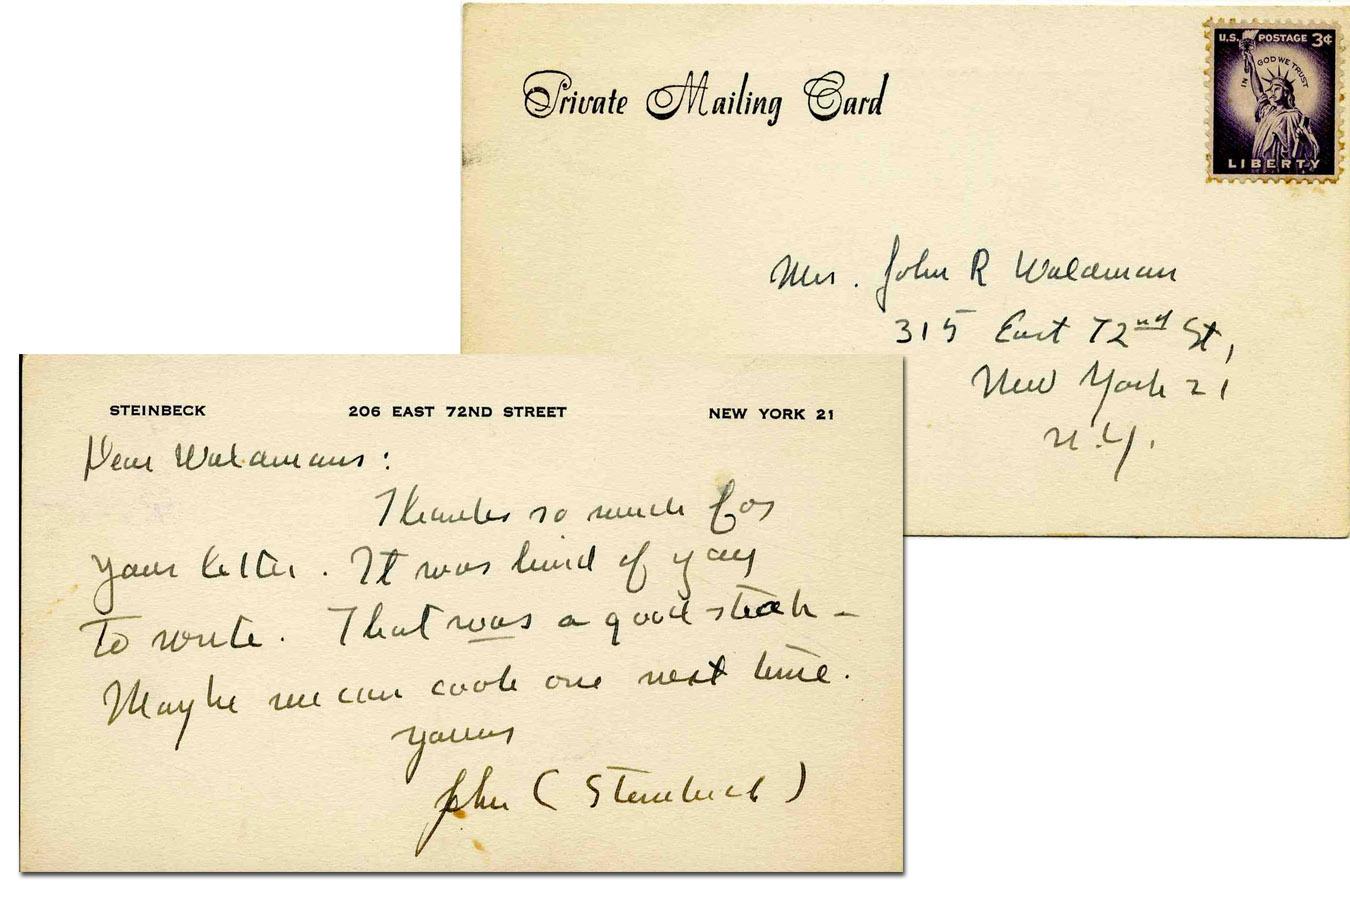 Private Mailing Card
U.S. POSTAGE 3¢
IN GOD WE TRUST
LIBERTY
Mrs. John R Waldman
315 East 72nd St,
New York 21
N.Y.
STEINBECK 206 EAST 72ND STREET NEW YORK 21
Dear Waldmans:
Thanks so much for
your letter. It was kind of you
to write. That was a good steak –
Maybe we can cook one next time.
yours
John (Steinbeck)